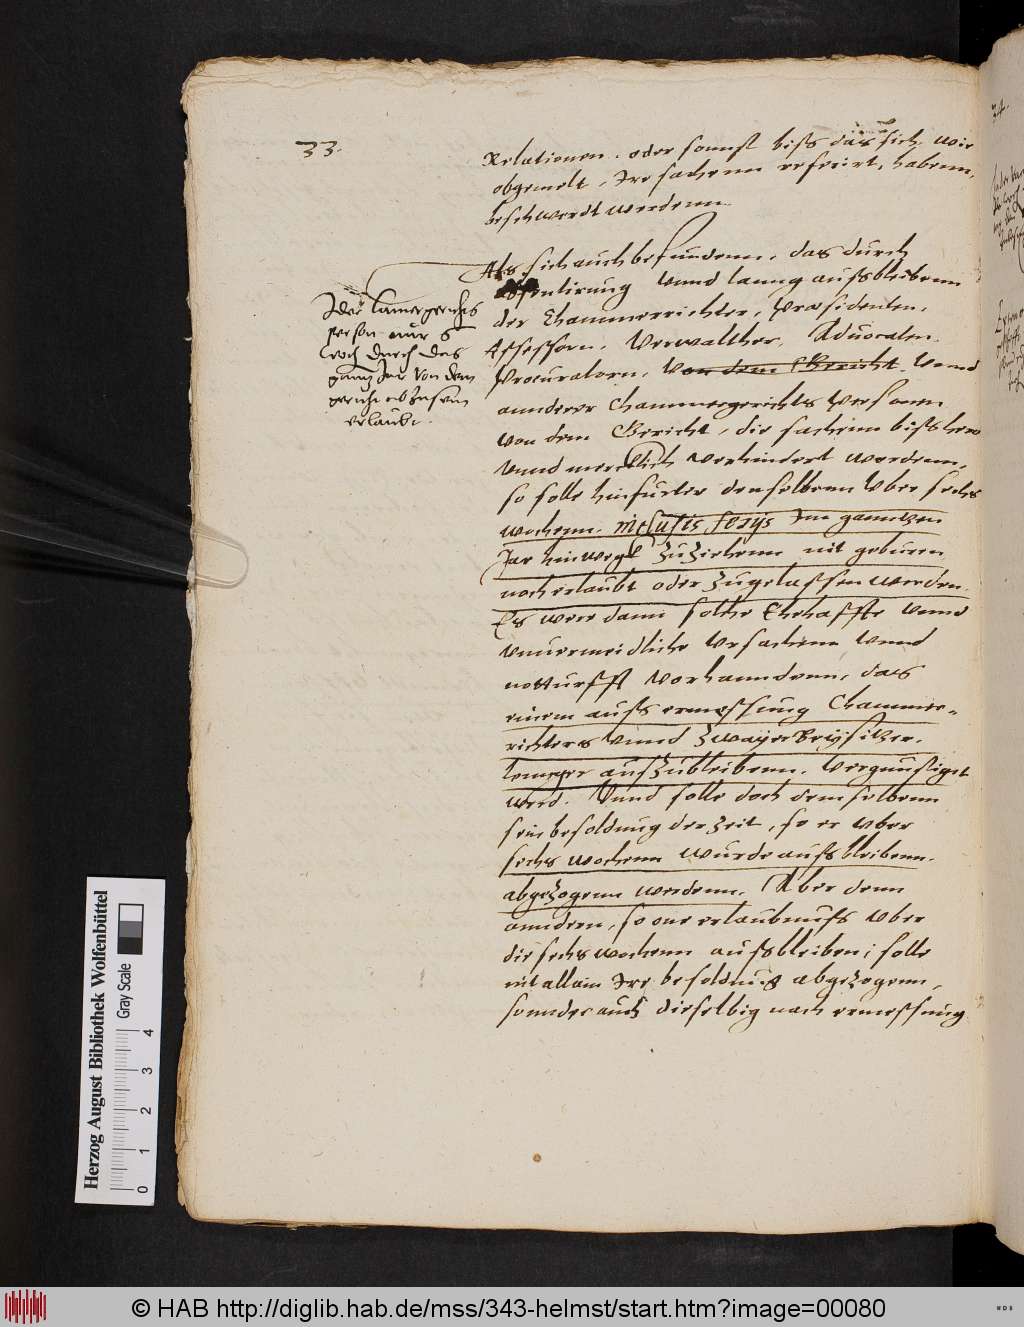 33.
Relationen. oder sonnst biss das sich, wie
obgemelt, Ire sachenn referirt, habenn,
beschwerdt werdenn.
Als sich auch befundenn, das durch
absentirung vnnd lanng aussbleibenn
der Chammerrichter, Praesidenten,
Assessorn, Verwalther, Aduocaten.
Procuratorn, von dem Gericht. vnnd
annderer Chammergerichts personen
von dem Gericht, die sachenn bissher
vnnd mercklich verhindert werdenn,
so solle hinfurter denselbenn vber sechs
wochenn. inclusis ferijs Im ganntzen
Jar hinwegk zuziehenn nit geburen
noch erlaubt oder zugelassen werden.
Es were dann solche Ehehaffte vnnd
vnuermeidliche vrsachenn vnnd
notturfft vorhanndenn, das
einem auss ermessung Chammer-
richters vnnd zwayer Beysitzer.
lennger auszubleibenn. vergunstiget
werd. Vnnd solle doch demselbenn
sein besoldung der zeit, so er vber
sechs wochenn wurde aussbleibenn.
abgezogenn werdenn. Aber denn
anndern, so one erlaubnuss vber
die sechs wochenn aussbleiben, solle
nit allain Ire besoldung abgezogenn,
sonnder auch dieselbig nach ermessung
Jder Camergerichts
person nur 6
woch durch das
gantz Jar von dem
gericht abzusein
erlaubt.
Herzog August Bibliothek Wolfenbüttel
Gray Scale
0 1 2 3 4
© HAB http://diglib.hab.de/mss/343-helmst/start.htm?image=00080